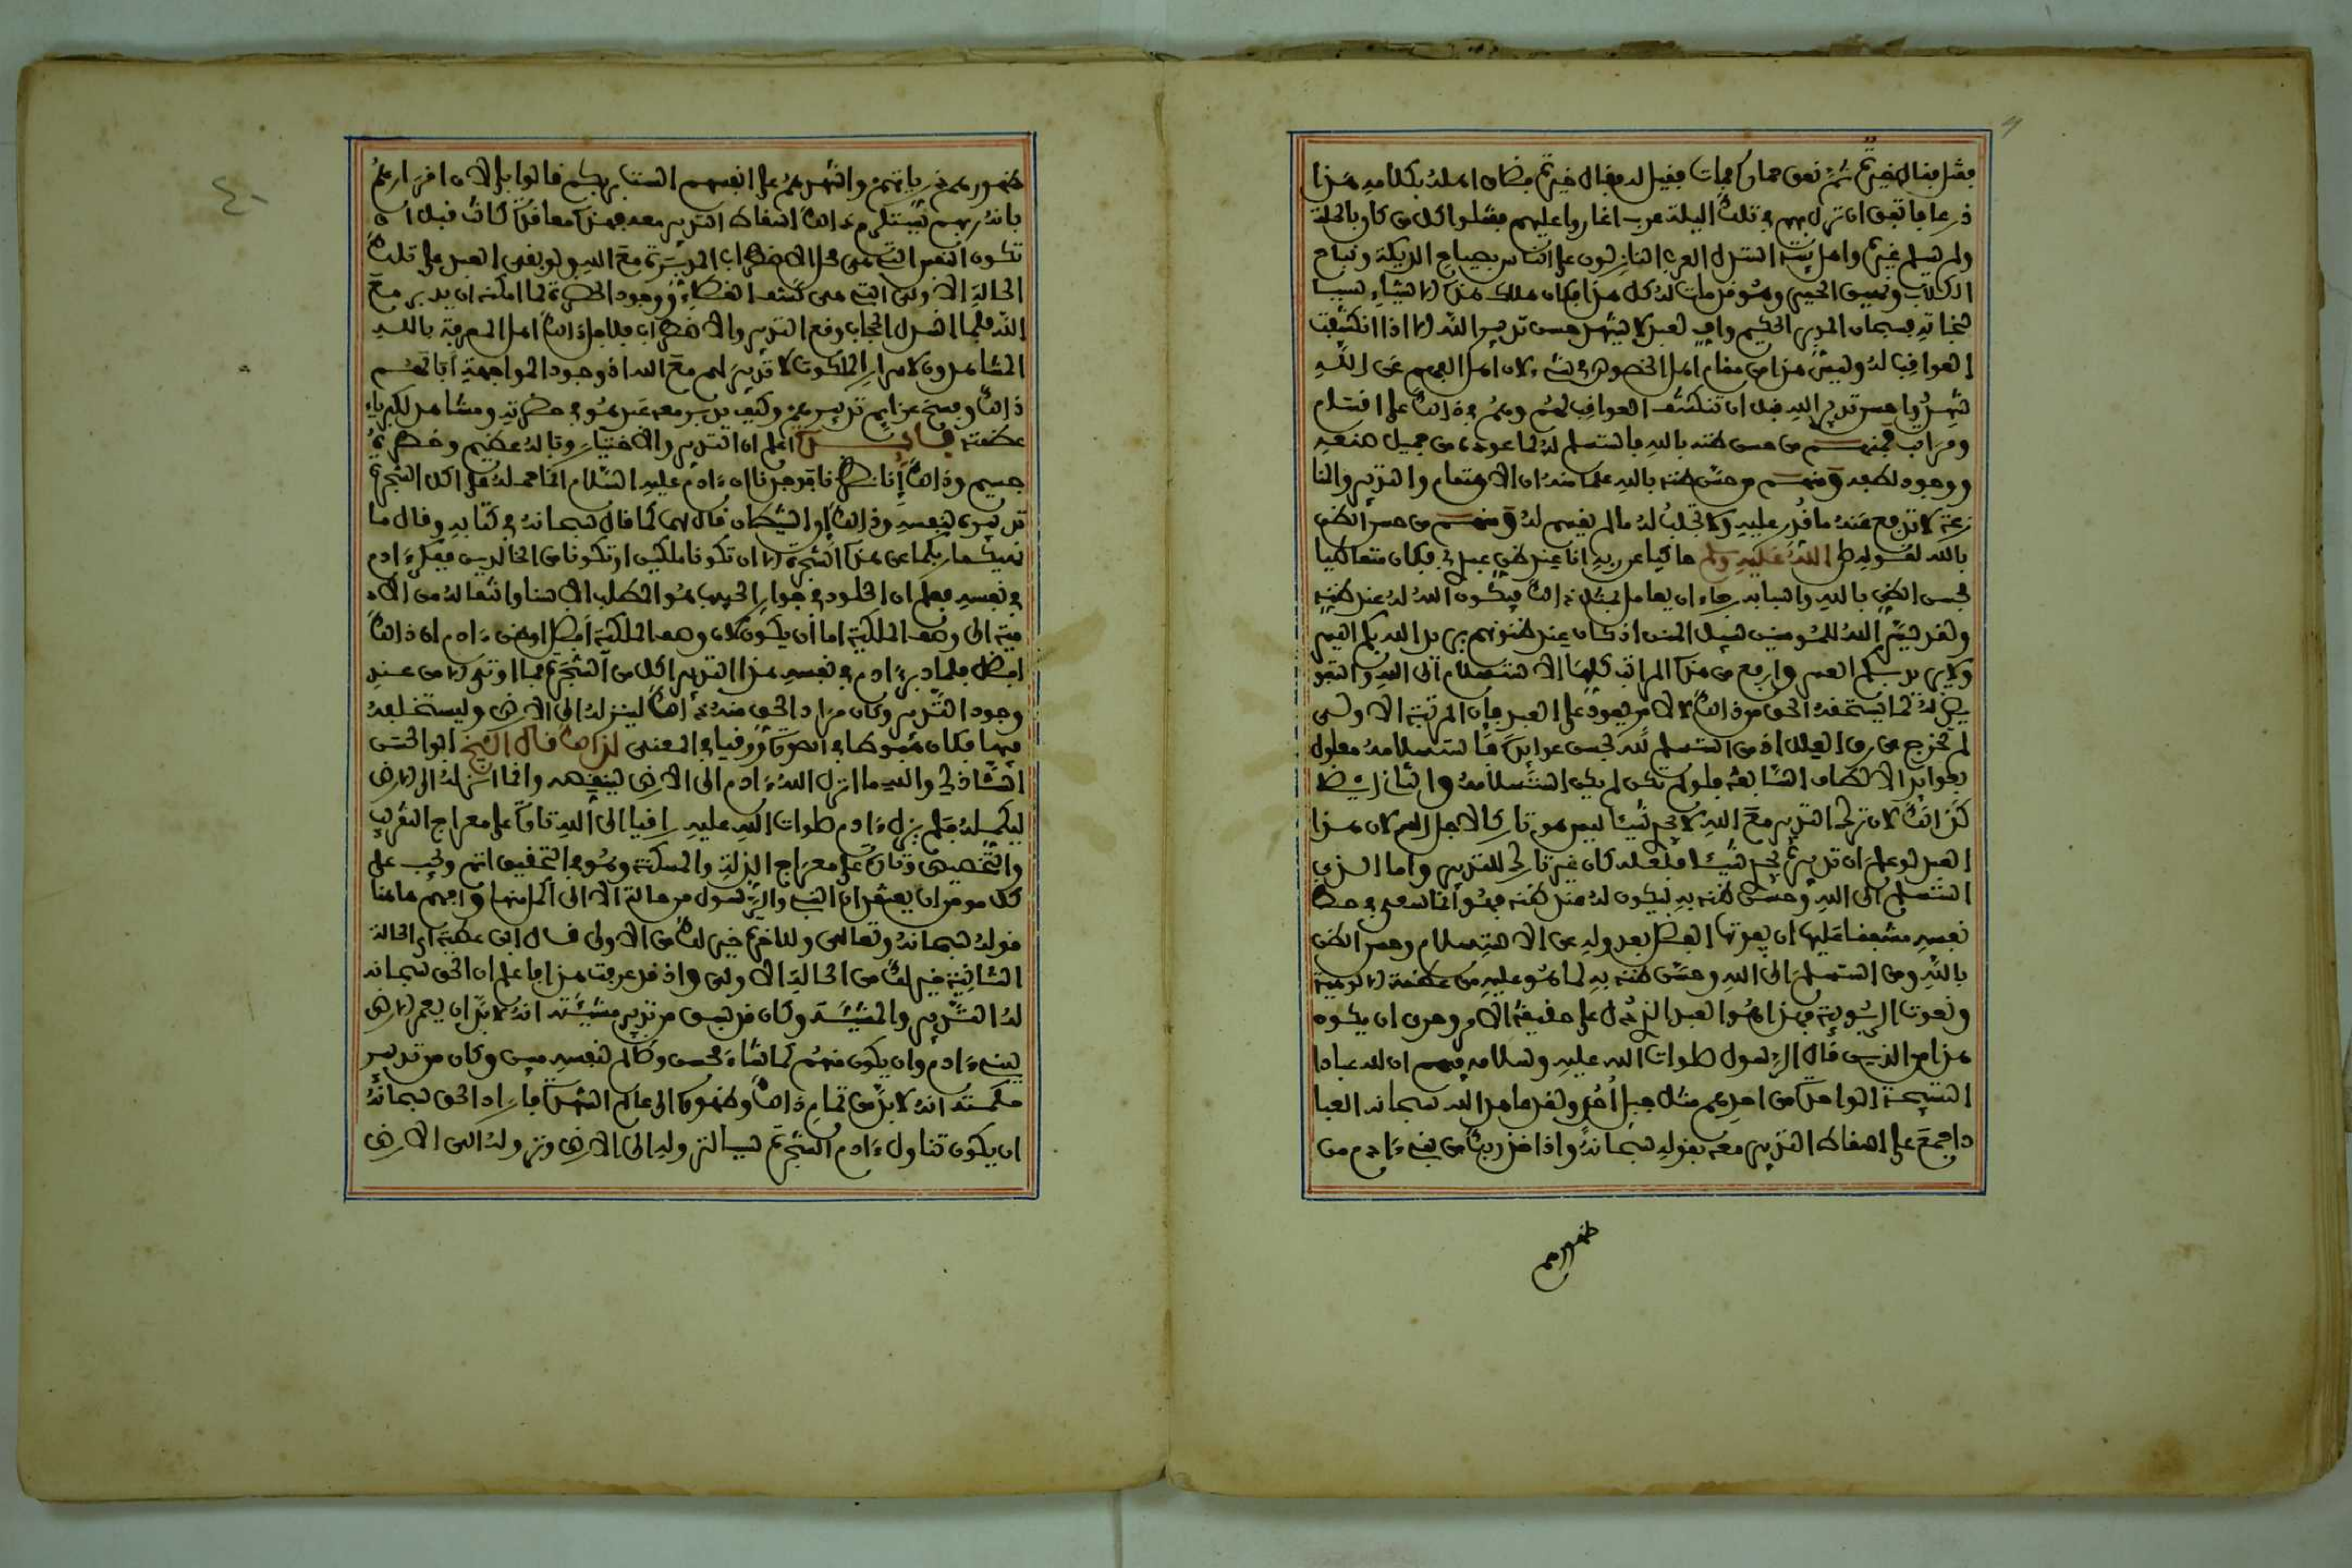 فقتل فقال خيرة ثم نهق حمار فمات فقيل له فقال خيرة فضاق اهله بكلامه هذا
ذرعا فاتفق ان نزل بهم في تلك اليلة عرب اغاروا عليهم فقتلوا كل من كان بالحلة
ولم يسلم غيره واهل بيته استدل العرب النازلون على الناس بصياح الديكة ونباح
الكلاب ونهيق الحمير وهو قد مات له كل هذا فكان هلاك هذه الاشياء سببا
لنجاته فسبحان المدبر الحكيم العبد لا يشهد حسن تدبير الله الا اذا انكشفت
العواقب له وليس هذا من مقام اهل الخصوص في شيء لان اهل الفهم عن الله
شهدوا حسن تدبير الله قبل ان تنكشف العواقب لهم وهم في ذلك على اقسام
ومراتب فمنهم من حسن ظنه بالله فاستسلم له لما عوده من جميل صنعه
ووجود لطفه ومنهم من حسن ظنه بالله علما منه ان الاهتمام والتدبير والمنا
زعة لا تدفع عنه ما قدر عليه ولا تجلب له ما لم يقسم له ومنهم من حسن الظن
بالله لقوله صلى الله عليه وسلم حاكيا عن ربه انا عند ظن عبدي بي فكان متعاطيا
لحسن الظن بالله واسبابه رجاء ان يعامل بمثل ذلك فيكون الله له عند ظنه
ولقد يسر الله للمومنين سبيل المنن اذ كان عند ظنونهم يريد الله بكم اليسر
ولا يريد بكم العسر وارفع من هذه المراتب كلها الاستسلام الى الله والتفو
يض له لما يستحقه الحق من ذلك لا لامر يعود على العبد فان المرتبة الاولى
لم تخرج عن رق العلل اذ من استسلم لله لحسن عوايده فاستسلامه معلول
بعوايد الالطاف السابقة فلو لم تكن لم يكن استسلامه والثاني ايضا
كذلك لان ترك التدبير مع الله لا يجدي شيئا ليس هو تاركا لاجل الله لان هذا
العبد لو علم ان تدبيره يجدي شيئا فلعله كان غير تارك للتدبير واما الذي
استسلم الى الله وحسن ظنه به ليكون له عند ظنه فهو انما يسعى في حظ
نفسه مشفقا عليها ان يفوتها الفضل بعدوله عن الاستسلام وحسن الظن
بالله ومن استسلم الى الله وحسن ظنه به لما هو عليه من عظمة الالوهية
ونعوت الربوبية فهذا هو العبد الذي دل على حقيقة الامر وحري ان يكون
هذا من الذين قال الرسول صلوات الله عليه وسلامه فيهم ان لله عبادا
التسبيحة الواحدة من احدهم مثل جبل احد ولقد عاهد الله سبحانه العبا
د اجمع على اسقاط التدبير معه بقوله سبحانه واذ اخذ ربك من بني ءادم من
ظهورهم
ظهورهم ذرياتهم واشهدهم على انفسهم الست بربكم قالوا بلى لان اقرارهم
بانه ربهم يستلزم ذلك اسقاط التدبير معه فهذه معاقدة كانت قبل ان
تكون النفس التي هي محل الاضطراب المدبرة مع الله ولو بقي العبد على تلك
الحالة الاولى التي هي كشف الغطاء ووجود الحضرة لما امكنه ان يدبر مع
الله فلما اسدل الحجاب وقع التدبير والاضطراب فلاجل ذلك اهل المعرفة بالله
المشاهدون لاسرار الملكوت لا تدبير لهم مع الله اذ وجود المواجهة ابا لهم
ذلك وفسخ عزايم تدبيرهم وكيف يدبر معه عبد هو في حضرته ومشاهد لكبرياء
عظمته فايدة اعلم ان التدبير والاختيار وباله عظيم وخطره
جسيم وذلك انا نظرنا فوجدنا ان ءادم عليه السلام انما حمله على اكل الشجرة
تدبيره لنفسه وذلك ان الشيطان قال لهما كما قال سبحانه في كتابه وقال ما
نهيكما ربكما عن هذه الشجرة الا ان تكونا ملكين او تكونا من الخالدين ففكر ءادم
في نفسه فعلم ان الخلود في جوار الحبيب هو المطلب الاسنا وانتقاله من الاد
مية الى وصف الملكية اما ان يكون لان وصف الملكية افضل او ظن ءادم ان ذلك
افضل فلما دبر ءادم في نفسه هذا التدبير اكل من الشجرة فما اوتي الا من عند
وجود التدبير وكان مراد الحق منه ذلك لينزله الى الارض وليستخلفه
فيها فكان هبوطا في الصورة ورقيا في المعنى لذلك قال الشيخ ابو الحسن
الشاذلي والله ما انزل الله ءادم الى الارض لينقصه وانما انزله الى الارض
ليكمله فلم يزل ءادم صلوات الله عليه راقيا الى الله تارة على معراج التقريب
والتخصيص وتارة على معراج الذلة والمسكنة وهو في التحقيق اتم ويجب على
كل مومن ان يعتقد ان النبي والرسول من حالة الا الى اكمل منها وافهم هاهنا
قوله سبحانه وتعالى وللاخرة خير لك من الاولى قال ابن عطية اي الحالة
الثانية خير لك من الحالة الاولى واذ قد عرفت هذا فاعلم ان الحق سبحانه
له التدبير والمشيئة وكان قد سبق من تدبيره ومشيئته انه لا بد ان يعمر الارض
ببني ءادم وان يكون منهم كما شاء محسن وظالم لنفسه مبين وكان من تدبير
حكمته انه لا بد من تمام ذلك وظهوره الى عالم الشهادة فاراد الحق سبحانه
ان يكون تناول ءادم الشجرة سببا لنزوله الى الارض ونزوله الى الارض